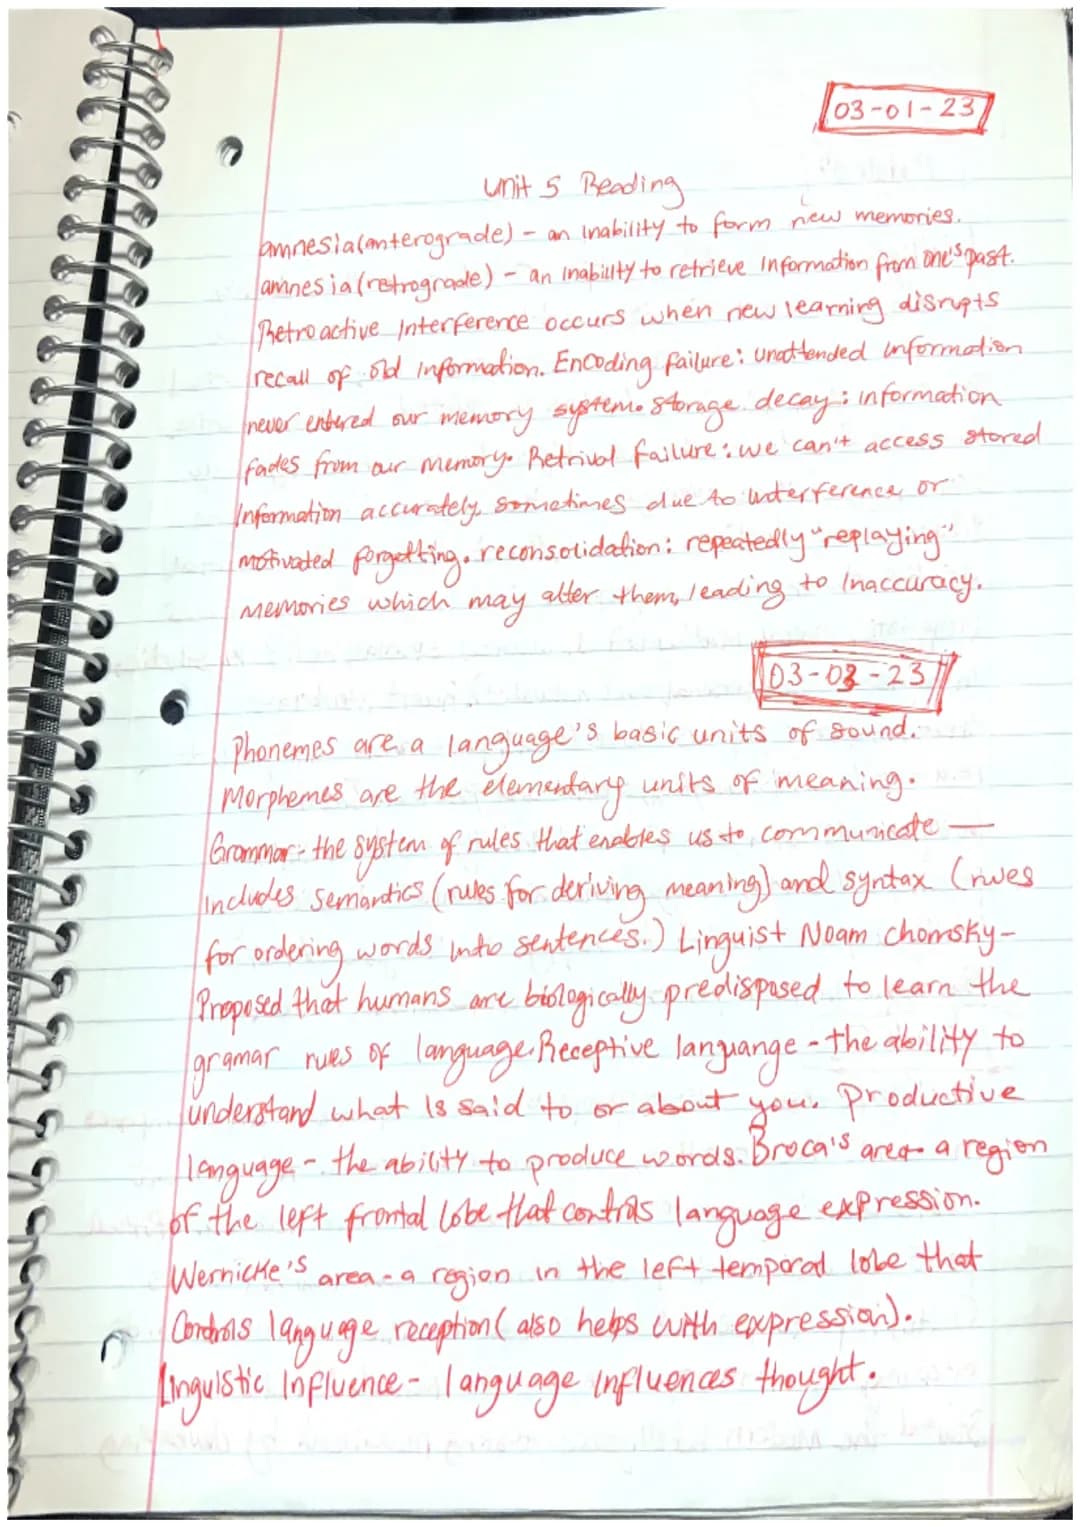 03-01-23
Unit 5 Reading
amnesia(anterograde) - an inability to form new memories.
amnesia(retrograde) - an inability to retrieve information from one's past.
Retroactive Interference occurs when new learning disrupts
recall of old information. Encoding failure: unattended information
never entered our memory system. Storage decay: information
fades from our memory. Retrival failure: we can't access stored
Information accurately, sometimes due to interference or
motivated forgetting. reconsolidation: repeatedly "replaying"
memories which may alter them, leading to Inaccuracy.
03-03-23
Phonemes are a language's basic units of sound.
Morphemes are the elementary units of meaning.
Grammar- the system of rules that enables us to communicate —
Includes semantics (rules for deriving meaning) and syntax (rules
for ordering words into sentences.) Linguist Noam chomsky-
Proposed that humans are biologically predisposed to learn the
gramar rules of language. Receptive languange - the ability to
understand what is said to or about you. Productive
language - the ability to produce words. Broca's area- a region
of the left frontal lobe that controls language expression.
Wernicke's area - a region in the left temporal lobe that
Controls language reception( also helps with expression).
Linguistic Influence - language influences thought.